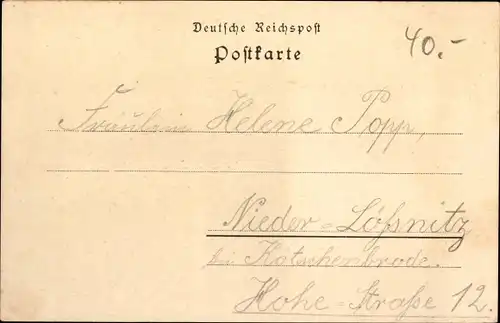 Deutsche Reichspost
Postkarte
40.-
Fräulein Helene Popp,
Nieder-Lößnitz
bei Kötschenbroda.
Hohe-Straße 12.